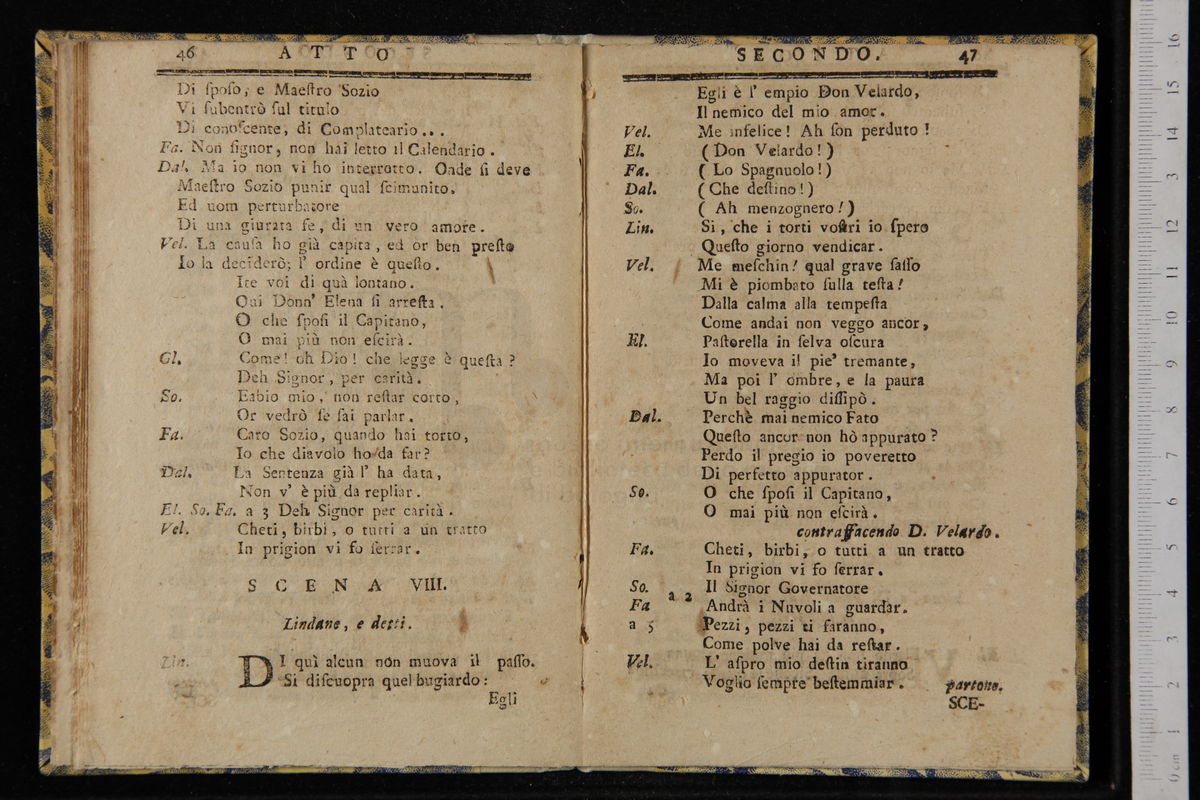 46 ATTO
Di ſpoſo, e Maeſtro Sozio
Vi ſubentrò ſul titulo
Di conoſcente, di Complateario...
Fa. Non ſignor, non hai letto il Calendario.
Dal. Ma io non vi ho interrotto. Onde ſi deve
Maeſtro Sozio punir qual ſcimunito.
Ed uom perturbatore
Di una giurata fe, di un vero amore.
Vel. La cauſa ho già capita, ed or ben preſto
Io la deciderò; l' ordine è queſto.
Ite voi di quà lontano.
Qui Donn' Elena ſi arreſta.
O che ſpoſi il Capitano,
O mai più non eſcirà.
Gl. Come! oh Dio! che legge è queſta?
Deh Signor, per carità.
So. Fabio mio, non reſtar corto,
Or vedrò ſe ſai parlar.
Fa. Caro Sozio, quando hai torto,
Io che diavolo ho da far?
Dal. La Sentenza già l' ha data,
Non v' è più da repliar.
El. So. Fa. a 3 Deh Signor per carità.
Vel. Cheti, birbi, o tutti a un tratto
In prigion vi fo ſerrar.
SCENA VIII.
Lindane, e detti.
Lin. DI quì alcun non muova il paſſo.
Si diſcuopra quel bugiardo:
Egli
SECONDO. 47
Egli è l' empio Don Velardo,
Il nemico del mio amor.
Vel. Me infelice! Ah ſon perduto!
El. (Don Velardo!)
Fa. (Lo Spagnuolo!)
Dal. (Che deſtino!)
So. (Ah menzognero!)
Lin. Si, che i torti voſtri io ſpero
Queſto giorno vendicar.
Vel. Me meſchin! qual grave ſaſſo
Mi è piombato ſulla teſta!
Dalla calma alla tempeſta
Come andai non veggo ancor,
El. Paſtorella in ſelva oſcura
Io moveva il pie' tremante,
Ma poi l' ombre, e la paura
Un bel raggio diſſipò.
Dal. Perchè mai nemico Fato
Queſto ancor non hò appurato?
Perdo il pregio io poveretto
Di perfetto appurator.
So. O che ſpoſi il Capitano,
O mai più non eſcirà.
contraffacendo D. Velardo.
Fa. Cheti, birbi, o tutti a un tratto
In prigion vi fo ſerrar.
So. Il Signor Governatore
a 2
Fa Andrà i Nuvoli a guardar.
a 5 Pezzi, pezzi ti faranno,
Come polve hai da reſtar.
Vel. L' aſpro mio deſtin tiranno
Voglio ſempre beſtemmiar. partono.
SCE-
0 cm 1 2 3 4 5 6 7 8 9 10 11 12 13 14 15 16